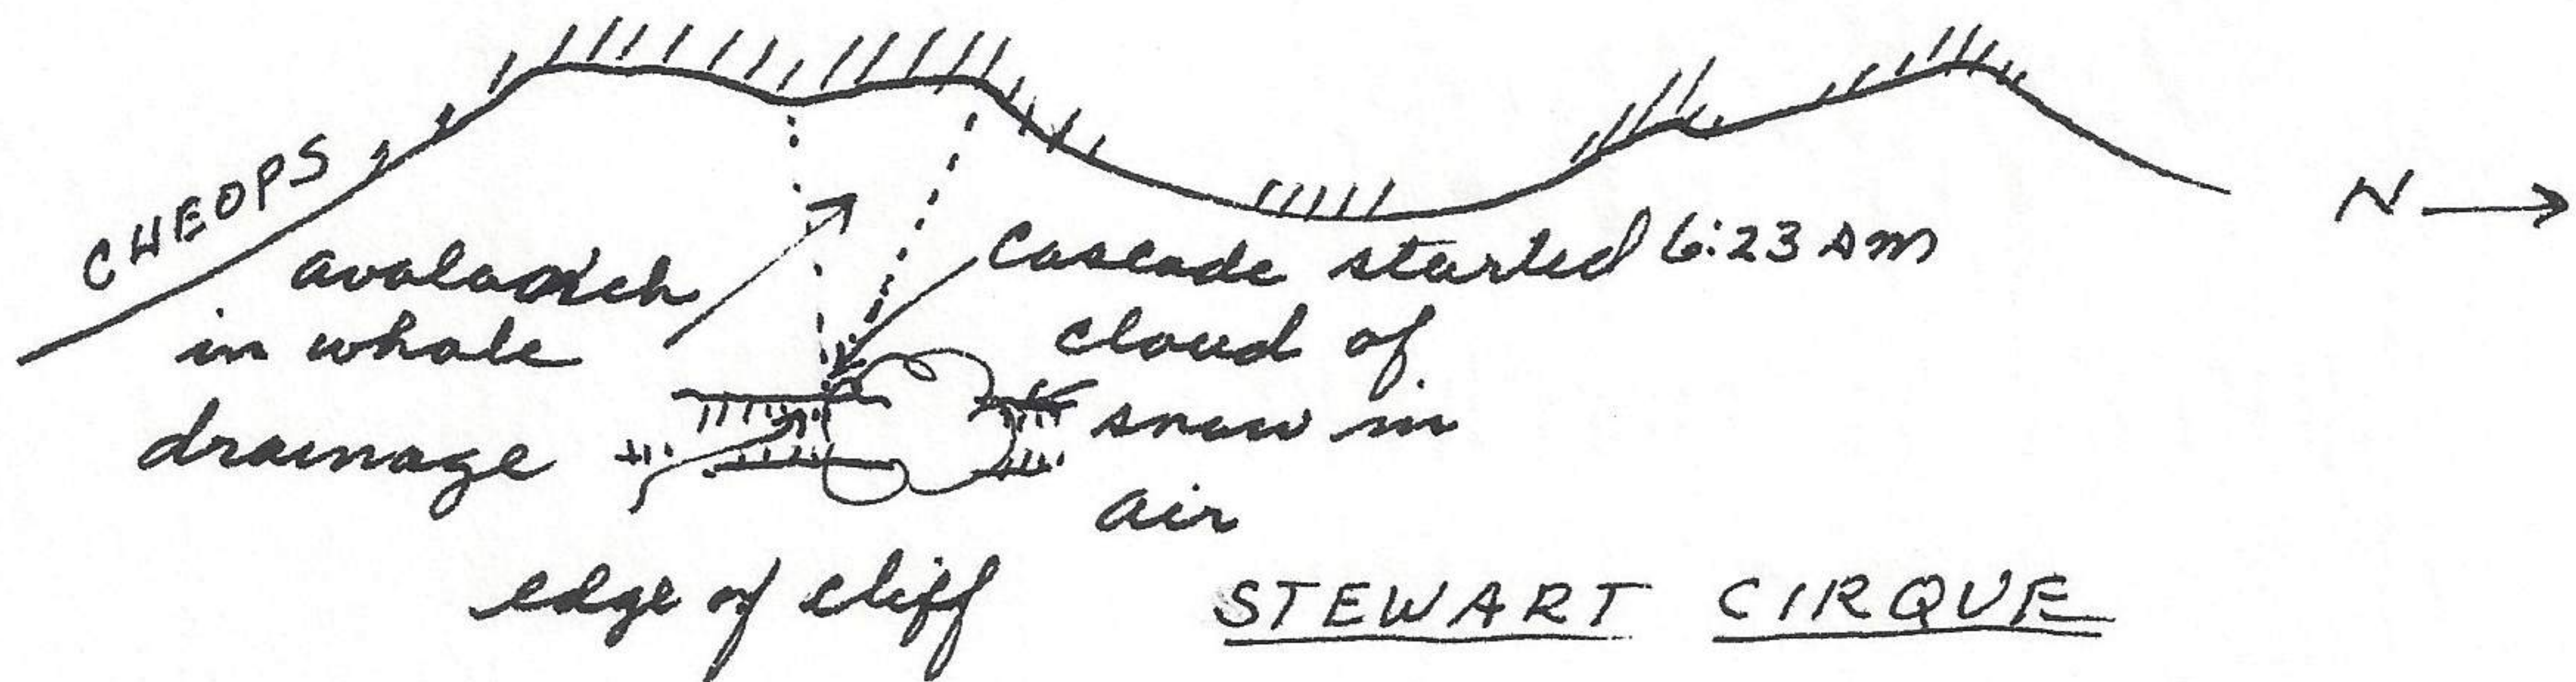 CHEOPS
N
avalanch
in whole
drainage
cascade started 6:23 AM
cloud of
snow in
air
edge of cliff
STEWART CIRQUE